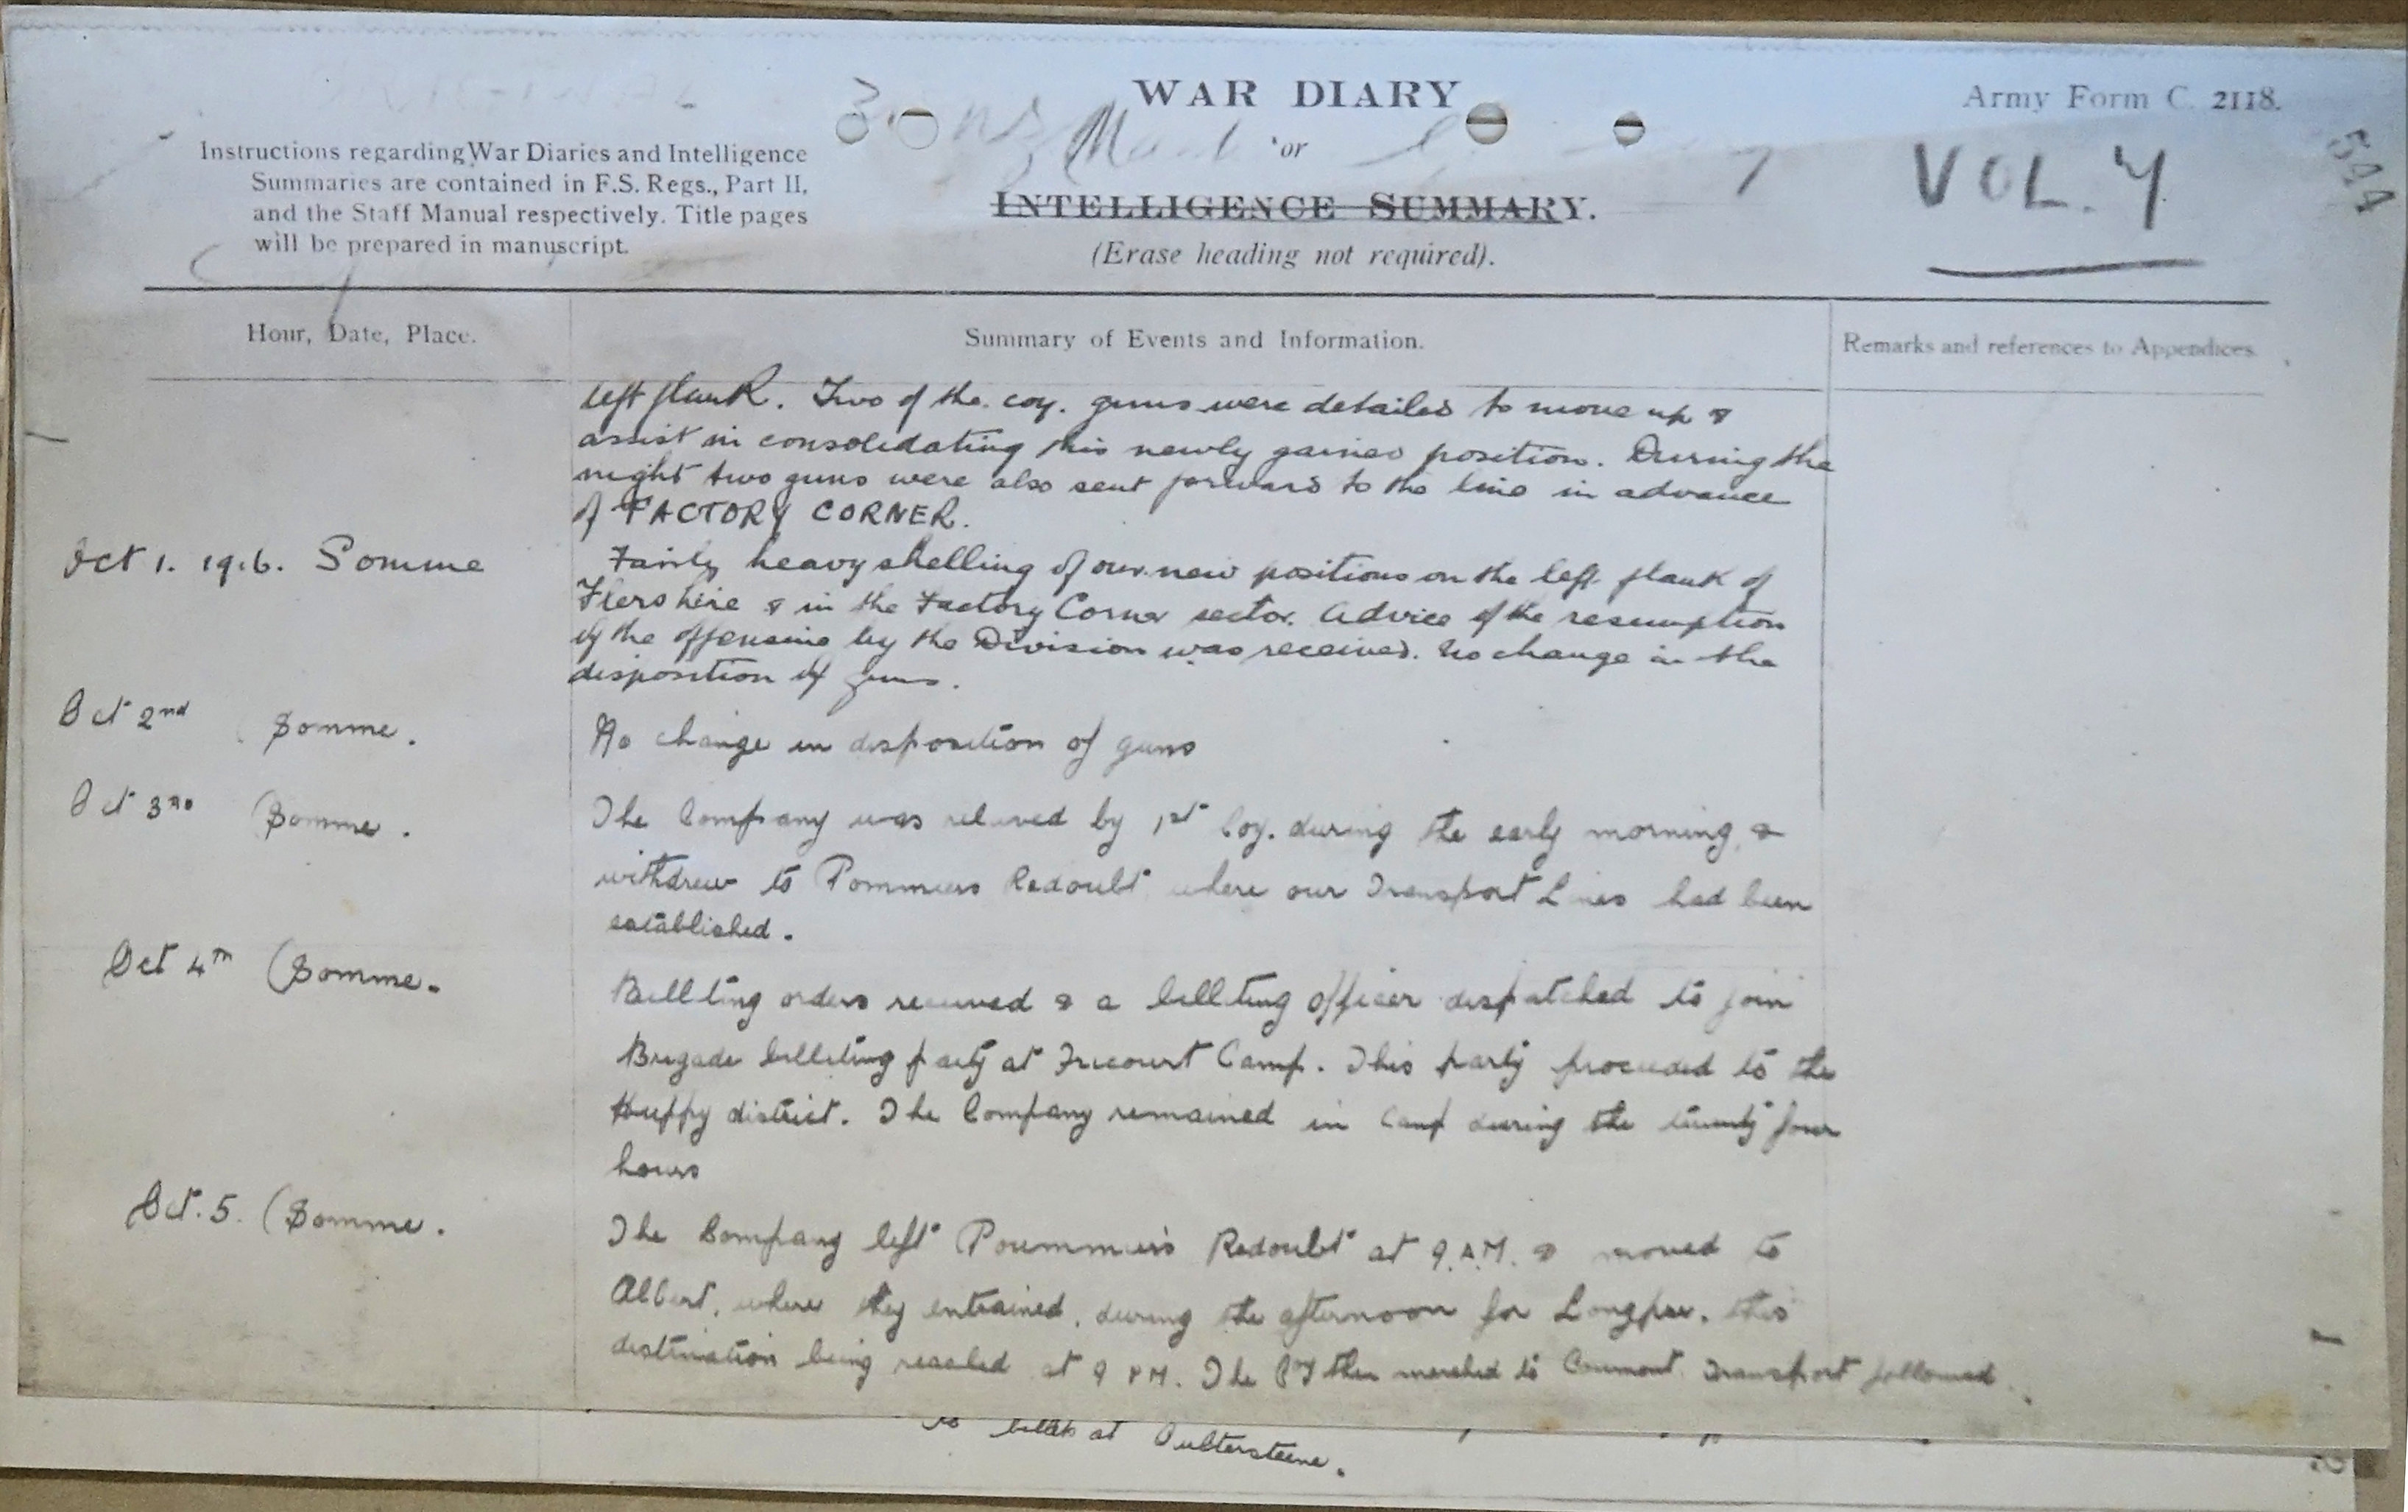 WAR DIARY
or
INTELLIGENCE SUMMARY.
(Erase heading not required).
Army Form C. 2118.
VOL. 4
544
Instructions regarding War Diaries and Intelligence
Summaries are contained in F.S. Regs., Part II,
and the Staff Manual respectively. Title pages
will be prepared in manuscript.
Hour, Date, Place.
Summary of Events and Information.
Remarks and references to Appendices.
left flank. Two of the coy. guns were detailed to move up &
assist in consolidating this newly gained position. During the
night two guns were also sent forward to the line in advance
of FACTORY CORNER.
Oct 1. 1916. Somme
Fairly heavy shelling of our new positions on the left flank of
Flers line & in the Factory Corner sector. Advice of the resumption
of the offensive by the Division was received. No change in the
disposition of guns.
Oct 2nd (Somme.
No change in disposition of guns
Oct 3rd (Somme.
The Company was relieved by 1st Coy. during the early morning &
withdrew to Pommiers Redoubt where our Transport Lines had been
established.
Oct 4th (Somme.
Billeting orders received & a billeting officer despatched to join
Brigade billeting party at Fricourt Camp. This party proceeded to the
Huppy district. The Company remained in Camp during the twenty four
hours
Oct. 5. (Somme.
The Company left Pommiers Redoubt at 9.A.M. & moved to
Albert, where they entrained, during the afternoon for Longpre, this
destination being reached at 9 PM. The Coy then marched to Transport followed
to billets at Outtersteene.